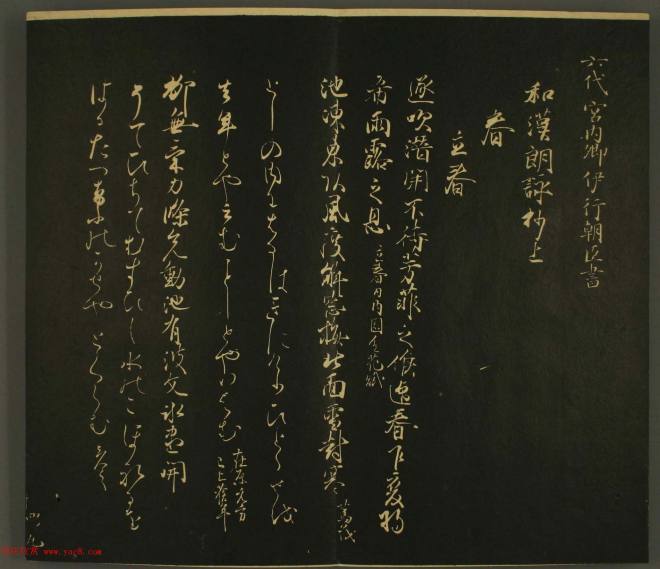 六代宮内卿伊行朝臣書
和漢朗詠抄上
春
立春
逐吹潜開不待芳菲之候迎春乍變将
希雨露之恩 立春日内園進花賦
池凍東頭風度解窓梅北面雪封寒 篤茂
としの内にはるはきにけりひとゝせを
去年とや云むことしとやいはむ 在原元方
柳無氣力條先動池有波文氷盡開
そてひちてむすひし水のこほれるを
はるたつ事のかせやとくらむ
www.yac8.com